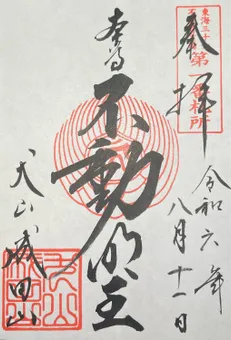 東海三十
第一番札所
奉拝
令和六年
八月十一日
本尊
不動明王
犬山成田山